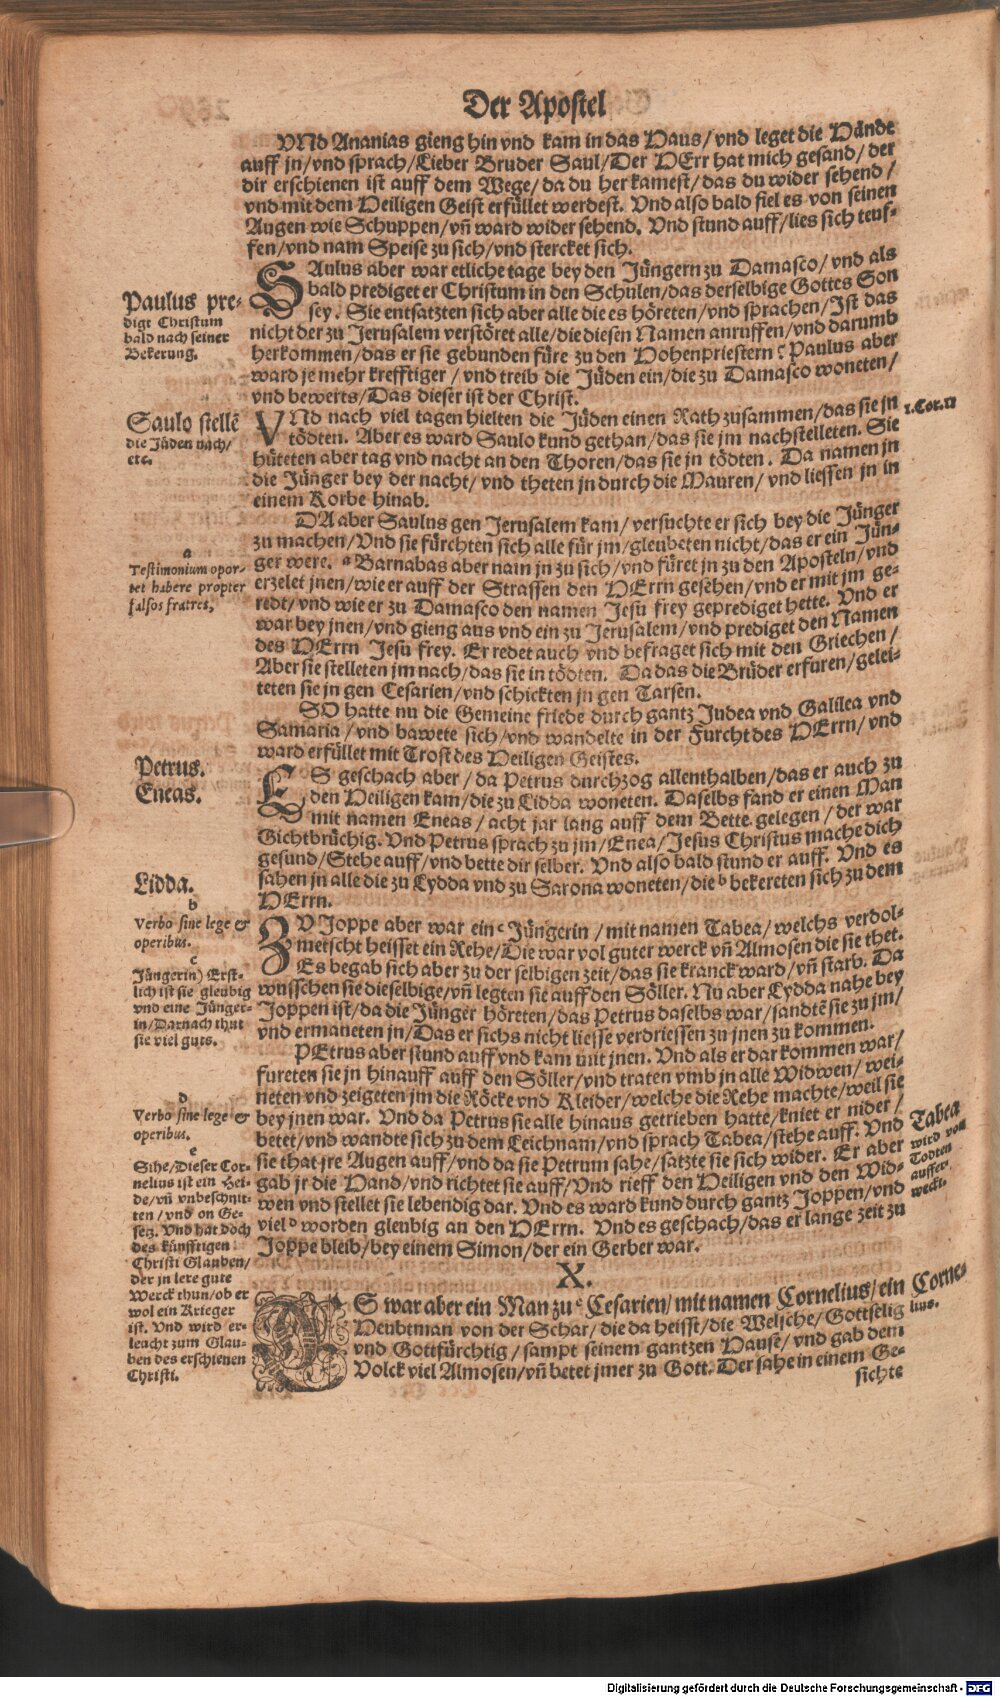 Der Apostel
VNd Ananias gieng hin vnd kam in das Haus/ vnd leget die Hände
auff jn/ vnd sprach/ Lieber Bruder Saul/ Der HErr hat mich gesand/ der
dir erschienen ist auff dem Wege/ da du her kamest/ das du wider sehend/
vnd mit dem Heiligen Geist erfüllet werdest. Vnd also bald fiel es von seinen
Augen wie Schuppen/ vn̄ ward wider sehend. Vnd stund auff/ lies sich teuf-
fen/ vnd nam Speise zu sich/ vnd stercket sich.
SAulus aber war etliche tage bey den Jüngern zu Damasco/ vnd als
bald prediget er Christum in den Schulen/ das derselbige Gottes Son
sey. Sie entsatzten sich aber alle die es höreten/ vnd sprachen/ Ist das
nicht der zu Jerusalem verstöret alle/ die diesen Namen anruffen/ vnd darumb
herkommen/ das er sie gebunden füre zu den Hohenpriestern? Paulus aber
ward je mehr krefftiger/ vnd treib die Jüden ein/ die zu Damasco woneten/
vnd bewerts/ Das dieser ist der Christ.
Paulus pre-
digt Christum
bald nach seiner
Bekerung.
VNd nach viel tagen hielten die Jüden einen Rath zusammen/ das sie jn
tödten. Aber es ward Saulo kund gethan/ das sie jm nachstelleten. Sie
hüteten aber tag vnd nacht an den Thoren/ das sie jn tödten. Da namen jn
die Jünger bey der nacht/ vnd theten jn durch die Mauren/ vnd liessen jn in
einem Korbe hinab.
1. Cor. 11
Saulo stellē
die Jüden nach/
etc.
DA aber Saulus gen Jerusalem kam/ versuchte er sich bey die Jünger
zu machen/ Vnd sie fürchten sich alle für jm/ gleubeten nicht/ das er ein Jün-
ger were. a Barnabas aber nam jn zu sich/ vnd füret jn zu den Aposteln/ vnd
erzelet jnen/ wie er auff der Strassen den HErrn gesehen/ vnd er mit jm ge-
redt/ vnd wie er zu Damasco den namen Jesu frey geprediget hette. Vnd er
war bey jnen/ vnd gieng aus vnd ein zu Jerusalem/ vnd prediget den Namen
des HErrn Jesu frey. Er redet auch vnd befraget sich mit den Griechen/
Aber sie stelleten jm nach/ das sie in tödten. Da das die Brüder erfuren/ gelei-
teten sie jn gen Cesarien/ vnd schickten jn gen Tarsen.
a
Testimonium opor-
tet habere propter
falsos fratres.
SO hatte nu die Gemeine friede durch gantz Judea vnd Galilea vnd
Samaria/ vnd bawete sich/ vnd wandelte in der Furcht des HErrn/ vnd
ward erfüllet mit Trost des Heiligen Geistes.
ES geschach aber/ da Petrus durchzog allenthalben/ das er auch zu
den Heiligen kam/ die zu Lidda woneten. Daselbs fand er einen Man
mit namen Eneas/ acht jar lang auff dem Bette gelegen/ der war
Gichtbrüchig. Vnd Petrus sprach zu jm/ Enea/ Jesus Christus mache dich
gesund/ Stehe auff/ vnd bette dir selber. Vnd also bald stund er auff. Vnd es
sahen jn alle die zu Lydda vnd zu Sarona woneten/ die b bekereten sich zu dem
HErrn.
Petrus.
Eneas.
Lidda.
b
Verbo sine lege &
operibus.
ZV Joppe aber war ein c Jüngerin/ mit namen Tabea/ welchs verdol-
metscht heisset ein Rehe/ Die war vol guter werck vn̄ Almosen die sie thet.
Es begab sich aber zu der selbigen zeit/ das sie kranck ward/ vn̄ starb. Da
wusschen sie dieselbige/ vn̄ legten sie auff den Söller. Nu aber Lydda nahe bey
Joppen ist/ da die Jünger höreten/ das Petrus daselbs war/ sandtē sie zu jm/
vnd ermaneten jn/ Das er sichs nicht liesse verdriessen zu jnen zu kommen.
c
Jüngerin) Erst-
lich ist sie gleubig
vnd eine Jünger-
in/ Darnach thut
sie viel guts.
PEtrus aber stund auff vnd kam mit jnen. Vnd als er dar kommen war/
fureten sie jn hinauff auff den Söller/ vnd traten vmb jn alle Widwen/ wei-
neten vnd zeigeten jm die Röcke vnd Kleider/ welche die Rehe machte/ weil sie
bey jnen war. Vnd da Petrus sie alle hinaus getrieben hatte/ kniet er nider/
betet/ vnd wandte sich zu dem Leichnam/ vnd sprach Tabea/ stehe auff. Vnd
sie that jre Augen auff/ vnd da sie Petrum sahe/ satzte sie sich wider. Er aber
gab jr die Hand/ vnd richtet sie auff/ Vnd rieff den Heiligen vnd den Wid-
wen vnd stellet sie lebendig dar. Vnd es ward kund durch gantz Joppen/ vnd
viel d worden gleubig an den HErrn. Vnd es geschach/ das er lange zeit zu
Joppe bleib/ bey einem Simon/ der ein Gerber war.
d
Verbo sine lege &
operibus.
Tabea
wird von
Todten
auffer-
weckt.
X.
ES war aber ein Man zu e Cesarien/ mit namen Cornelius/ ein
Heubtman von der Schar/ die da heisst/ die Welsche/ Gottselig
vnd Gottfürchtig/ sampt seinem gantzen Hause/ vnd gab dem
Volck viel Almosen/ vn̄ betet jmer zu Gott. Der sahe in einem Ge-
sichte
Corne-
lius.
e
Sihe/ Dieser Cor-
nelius ist ein Hei-
de/ vn̄ vnbeschnit-
ten/ vnd on Ge-
setz. Vnd hat doch
des künfftigen
Christi Glauben/
der jn lere gute
Werck thun/ ob er
wol ein Krieger
ist. Vnd wird er-
leucht zum Glau-
ben des erschienen
Christi.
Digitalisierung gefördert durch die Deutsche Forschungsgemeinschaft - DFG